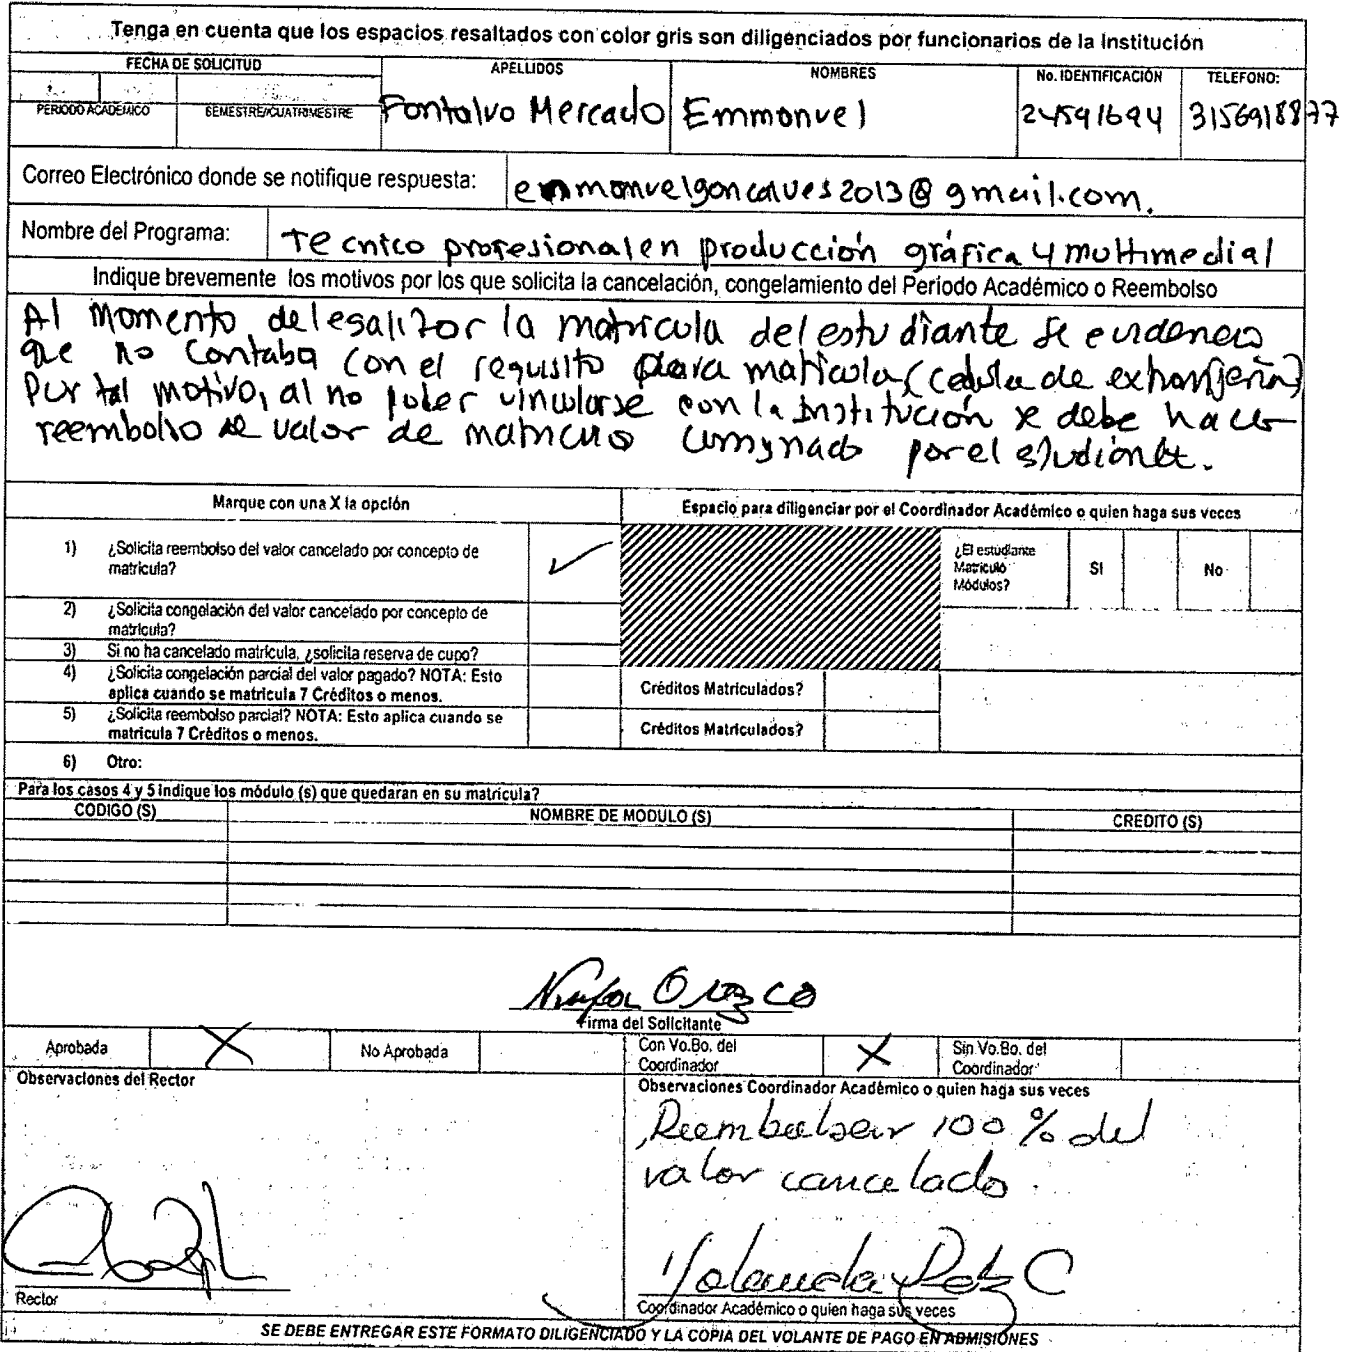 Tenga en cuenta que los espacios resaltados con color gris son diligenciados por funcionarios de la Institución
FECHA DE SOLICITUD APELLIDOS NOMBRES No. IDENTIFICACIÓN TELEFONO:
PERIODO ACADEMICO SEMESTRE/CUATRIMESTRE Fontalvo Mercado Emmanuel 24591694 3156918877
Correo Electrónico donde se notifique respuesta: emmanuelgoncalves2013@gmail.com.
Nombre del Programa: Tecnico profesional en producción gráfica y multimedial
Indique brevemente los motivos por los que solicita la cancelación, congelamiento del Período Académico o Reembolso
Al momento de legalizar la matricula del estudiante se evidencio
que no contaba con el requisito para matricula (cedula de extranjeria)
Por tal motivo, al no poder vincularse con la institución se debe hacer
reembolso de valor de matricula consignado por el estudiante.
Marque con una X la opción Espacio para diligenciar por el Coordinador Académico o quien haga sus veces
1) ¿Solicita reembolso del valor cancelado por concepto de
matrícula?
¿El estudiante
Matriculó
Módulos? SI No
2) ¿Solicita congelación del valor cancelado por concepto de
matrícula?
3) Si no ha cancelado matrícula, ¿solicita reserva de cupo?
4) ¿Solicita congelación parcial del valor pagado? NOTA: Esto
aplica cuando se matricula 7 Créditos o menos. Créditos Matriculados?
5) ¿Solicita reembolso parcial? NOTA: Esto aplica cuando se
matricula 7 Créditos o menos. Créditos Matriculados?
6) Otro:
Para los casos 4 y 5 Indique los módulo (s) que quedaran en su matrícula?
CODIGO (S) NOMBRE DE MODULO (S) CREDITO (S)
Orozco
Firma del Solicitante
Aprobada X No Aprobada Con Vo.Bo. del
Coordinador X Sin Vo.Bo. del
Coordinador
Observaciones del Rector
Observaciones Coordinador Académico o quien haga sus veces
Reembolsar 100 % del
valor cancelado.
Yolanda C
Rector
Coordinador Académico o quien haga sus veces
SE DEBE ENTREGAR ESTE FORMATO DILIGENCIADO Y LA COPIA DEL VOLANTE DE PAGO EN ADMISIONES